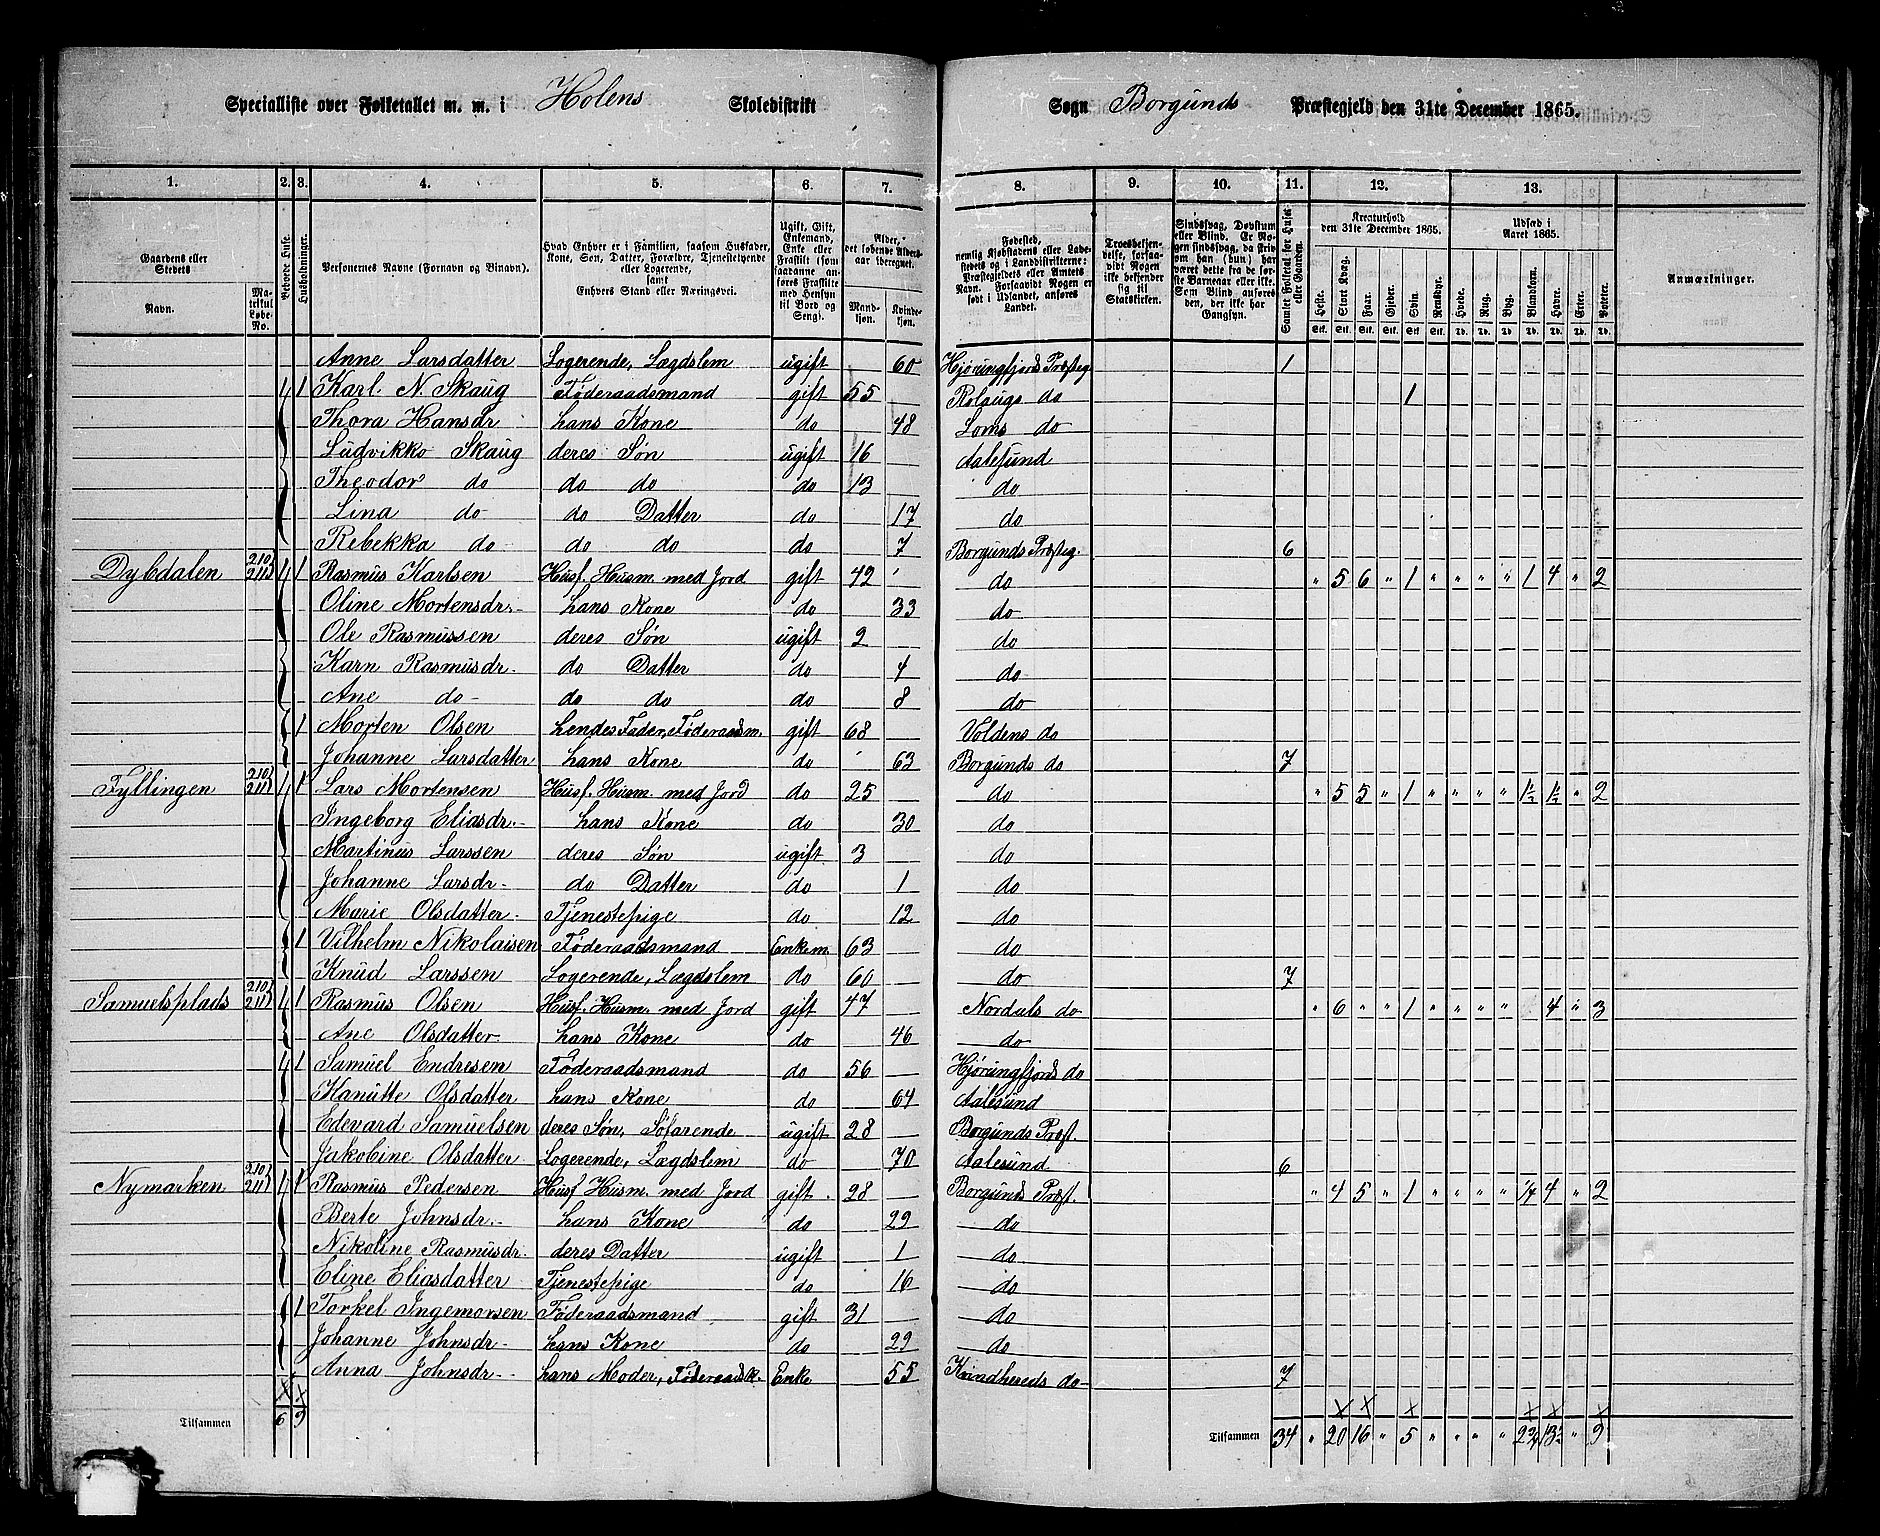 Specialliste over Folketallet m. m. i Holens Skoledistrikt Sogn Borgunds Præstegjeld den 31te December 1865.
1. 2. 3. 4. 5. 6. 7. 8. 9. 10. 11. 12. 13.
Gaardens eller Stedets Navn. Matrikul Løbe-No. Beboede Huse. Husholdninger. Personernes Navne (Fornavn og Binavn). Hvad Enhver er i Familien, saasom Husfader, Kone, Søn, Datter, Forældre, Tjenestetyende eller Logerende, samt Enhvers Stand eller Næringsvei. Ugift, Gift, Enkemand, Enke eller Fraskilt (som saadanne anføres Fraskilte med Hensyn til Bord og Seng). Alder, det løbende Aldersaar iberegnet. Mandkjøn. Kvindekjøn. Fødested, nemlig Kjøbstadens eller Ladestedets og i Landdistrikterne: Præstegjeldets eller Amtets Navn. Forsaavidt Nogen er født i Udlandet, anføres Landet. Troesbekjendelse, forsaavidt Nogen ikke bekjender sig til Statskirken. Sindssvag, Døvstum eller Blind. Er Nogen sindssvag, da skrives om han (hun) har været dette fra de første Barneaar eller ikke. Som Blind anføres den, der ikke har Gangsyn. Samlet Folketal for Huset eller Gaarden. Kreaturhold den 31te December 1865. Heste. Stort Kvæg. Faar. Gjeder. Svin. Rensdyr. Udsæd i Aaret 1865. Hvede. Rug. Byg. Blandkorn. Havre. Erter. Poteter. Anmærkninger.
Anne Larsdatter Logerende, Lægdslem ugift 60 Hjørungfjords Præsteg 1
1 1 Karl N. Skaug Føderaadsmand gift 55 Rolaugs do 1
Thora Hansdr hans Kone do 48 Loms do
Ludvikko Skaug deres Søn ugift 16 Aalesund
Theodor do do do do 13 do
Lina do do Datter do 17 do
Rebekka do do do do 7 Borgunds Præsteg. 6
Dybdalen 210 211 1 1 Rasmus Karlsen Husf. Husm. med Jord gift 42 do " 5 6 " 1 " " " " 1 4 " 2
Oline Mortensdr. hans Kone do 33 do
Ole Rasmussen deres Søn ugift 2 do
Karn Rasmusdr. do Datter do 4 do
Ane do do do do 8 do
1 Morten Olsen hendes Fader, Føderaadsm. gift 68 Voldens do
Johanne Larsdatter hans Kone do 63 Borgunds do 7
Fyllingen 210 211 1 1 Lars Mortensen Husf. Husm. med Jord do 25 do " 5 5 " 1 " " " " 1½ 1½ " 2
Ingeborg Eliasdr. hans Kone do 30 do
Martinus Larssen deres Søn ugift 3 do
Johanne Larsdr. do Datter do 1 do
Marie Olsdatter Tjenestepige do 12 do
1 Vilhelm Nikolaisen Føderaadsmand Enkem. 63 do
Knud Larssen Logerende, Lægdslem do 60 do 7
Samuelsplads 210 211 1 1 Rasmus Olsen Husf. Husm. med Jord gift 47 Nordals do " 6 " " 1 " " " " 4 " 3
Ane Olsdatter hans Kone do 46 do
1 1 Samuel Endresen Føderaadsmand do 56 Hjørungfjords do
Kanutte Olsdatter hans Kone do 64 Aalesund
Edevard Samuelsen deres Søn, Søfarende ugift 28 Borgunds Præst.
Jakobine Olsdatter Logerende, Lægdslem do 70 Aalesund 6
Nymarken 210 211 1 1 Rasmus Pedersen Husf Husm. med Jord gift 28 Borgunds Præst. " 4 5 " 1 " " " " ¼ 4 " 2
Berte Johnsdr. hans Kone do 29 do
Nikoline Rasmusdr. deres Datter ugift 1 do
Eline Eliasdatter Tjenestepige do 16 do
1 Torkel Ingemorsen Føderaadsmand gift 31 do
Johanne Johnsdr. hans Kone do 29 do
Anna Johnsdr. hans Moder, Føderaadsk. Enke 55 Kvindhereds do 7
Tilsammen 6 9 Tilsammen 34 " 20 16 " 5 " " " " 2¾ 13½ " 9